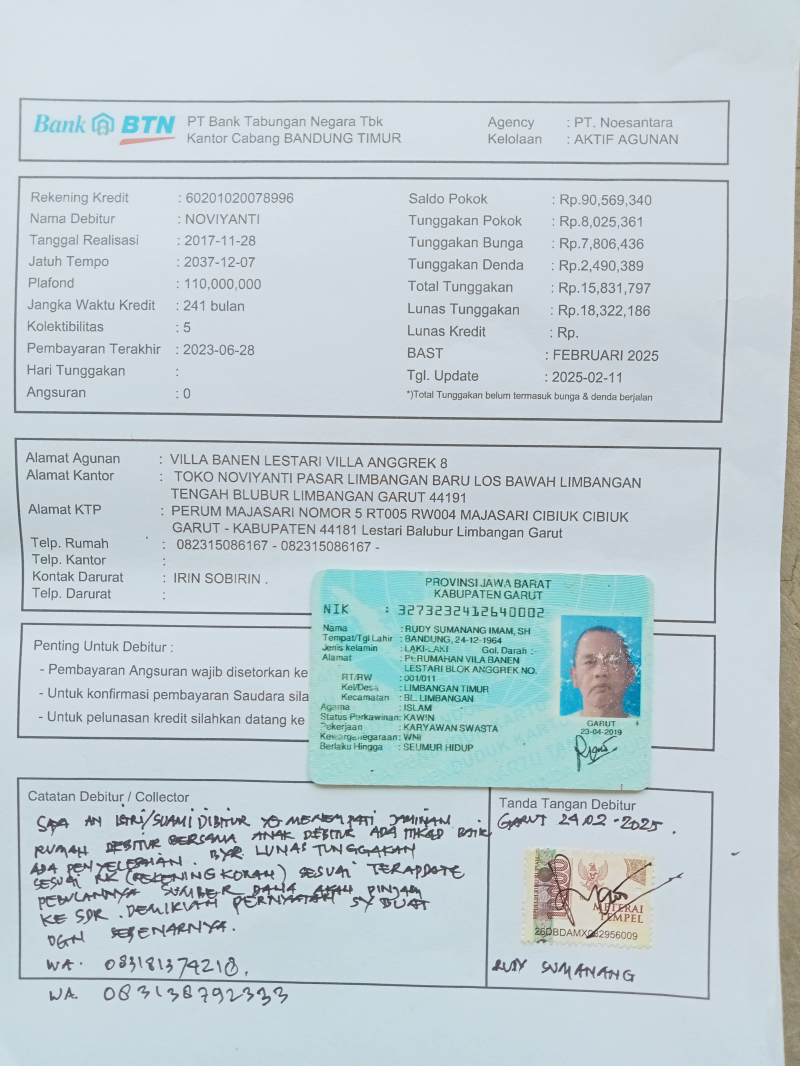 Bank BTN
PT Bank Tabungan Negara Tbk
Kantor Cabang BANDUNG TIMUR
Agency : PT. Noesantara
Kelolaan : AKTIF AGUNAN
Rekening Kredit : 60201020078996
Nama Debitur : NOVIYANTI
Tanggal Realisasi : 2017-11-28
Jatuh Tempo : 2037-12-07
Plafond : 110,000,000
Jangka Waktu Kredit : 241 bulan
Kolektibilitas : 5
Pembayaran Terakhir : 2023-06-28
Hari Tunggakan :
Angsuran : 0
Saldo Pokok : Rp.90,569,340
Tunggakan Pokok : Rp.8,025,361
Tunggakan Bunga : Rp.7,806,436
Tunggakan Denda : Rp.2,490,389
Total Tunggakan : Rp.15,831,797
Lunas Tunggakan : Rp.18,322,186
Lunas Kredit : Rp.
BAST : FEBRUARI 2025
Tgl. Update : 2025-02-11
*)Total Tunggakan belum termasuk bunga & denda berjalan
Alamat Agunan : VILLA BANEN LESTARI VILLA ANGGREK 8
Alamat Kantor : TOKO NOVIYANTI PASAR LIMBANGAN BARU LOS BAWAH LIMBANGAN
TENGAH BLUBUR LIMBANGAN GARUT 44191
Alamat KTP : PERUM MAJASARI NOMOR 5 RT005 RW004 MAJASARI CIBIUK CIBIUK
GARUT - KABUPATEN 44181 Lestari Balubur Limbangan Garut
Telp. Rumah : 082315086167 - 082315086167 -
Telp. Kantor :
Kontak Darurat : IRIN SOBIRIN .
Telp. Darurat :
Penting Untuk Debitur :
- Pembayaran Angsuran wajib disetorkan ke
- Untuk konfirmasi pembayaran Saudara sila
- Untuk pelunasan kredit silahkan datang ke
PROVINSI JAWA BARAT
KABUPATEN GARUT
NIK : 3273232412640002
Nama : RUDY SUMANANG IMAM, SH
Tempat/Tgl Lahir : BANDUNG, 24-12-1964
Jenis kelamin : LAKI-LAKI Gol. Darah :-
Alamat : PERUMAHAN VILA BANEN
LESTARI BLOK ANGGREK NO.
RT/RW : 001/011
Kel/Desa : LIMBANGAN TIMUR
Kecamatan : BL. LIMBANGAN
Agama : ISLAM
Status Perkawinan: KAWIN
Pekerjaan : KARYAWAN SWASTA
Kewarganegaraan: WNI
Berlaku Hingga : SEUMUR HIDUP
GARUT
23-04-2019
Catatan Debitur / Collector
SAYA AN ISTRI/SUAMI DIBITUR YG MENEMPATI JAMINAN
RUMAH DEBITUR BERSAMA ANAK DEBITUR ADA ITIKAD BAIK
ADA PENYELESAIAN. BYR LUNAS TUNGGAKAN
SESUAI RK (REKENING KORAN) SESUAI TERAPDATE
PEBULANNYA SUMBER DANA AKAN PINJAM
KE SDR. DEMIKIAN PERNYATAAN SY BUAT
DGN SEBENARNYA.
WA. 083181374218.
WA. 083138792333
Tanda Tangan Debitur
GARUT 24 02 - 2025.
METERAI
TEMPEL
RUDY SUMANANG